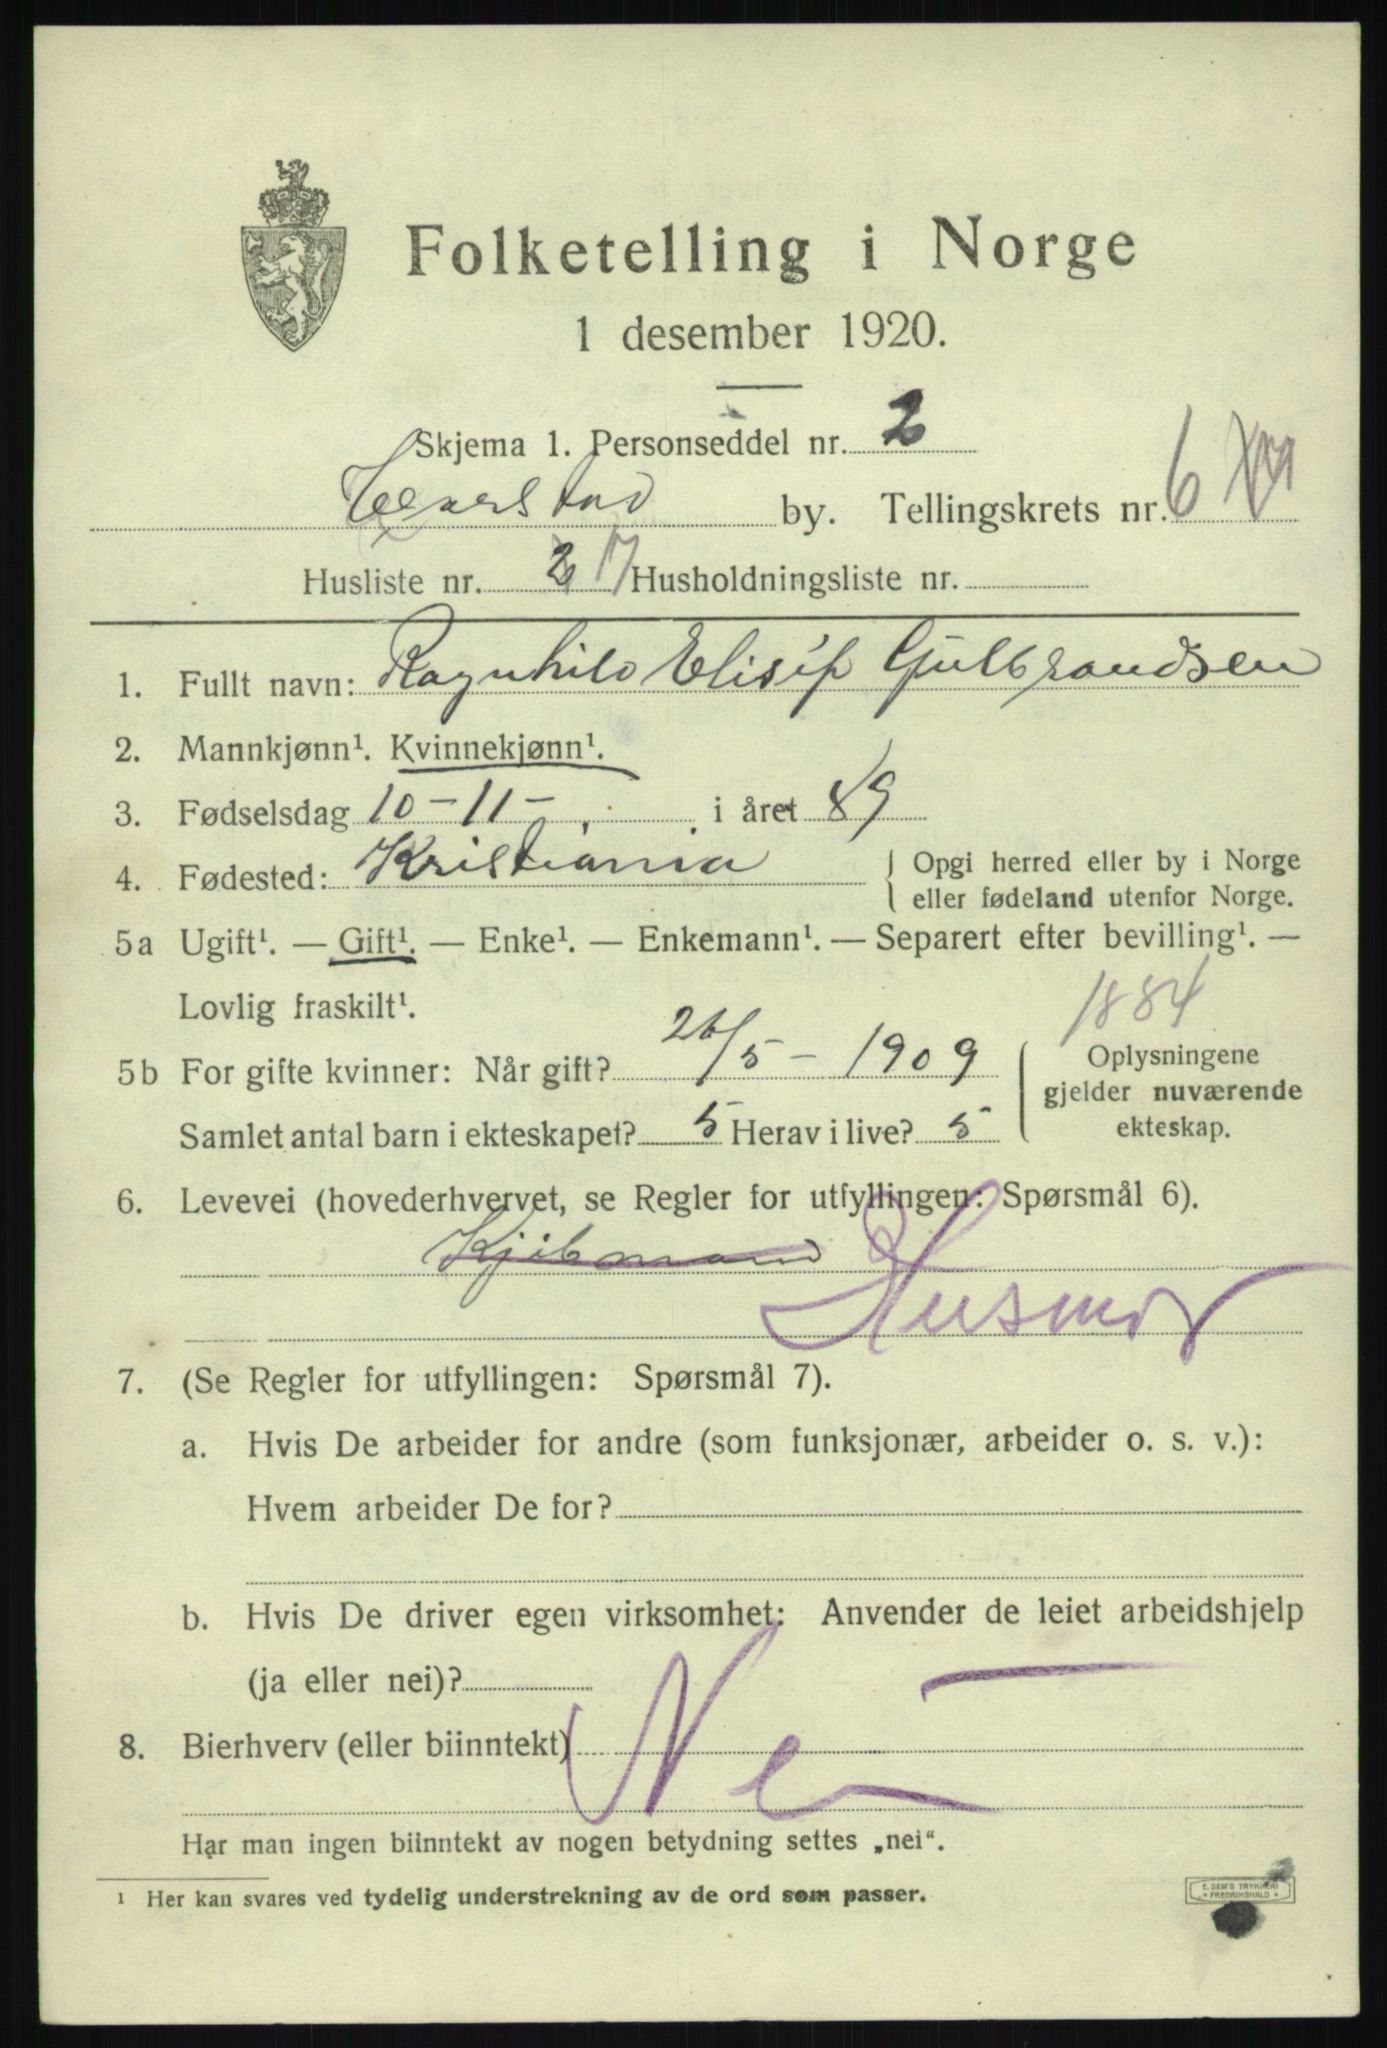 Folketelling i Norge
1 desember 1920.
Skjema 1. Personseddel nr. 2
Harstad by. Tellingskrets nr. 6
Husliste nr. 17 Husholdningsliste nr.
1. Fullt navn: Ragnhild Elisif Gulbrandsen
2. Mannkjønn¹. Kvinnekjønn¹.
3. Fødselsdag 10-11- i året 89
4. Fødested: Kristiania { Opgi herred eller by i Norge
eller fødeland utenfor Norge.
5a Ugift¹. — Gift¹. — Enke¹. — Enkemann¹. — Separert efter bevilling¹. —
Lovlig fraskilt¹.
1884
5b For gifte kvinner: Når gift? 26/5 - 1909 { Oplysningene
gjelder nuværende
Samlet antal barn i ekteskapet? 5 Herav i live? 5 ekteskap.
6. Levevei (hovederhvervet, se Regler for utfyllingen: Spørsmål 6).
Kjöbmand Husmor
7. (Se Regler for utfyllingen: Spørsmål 7).
a. Hvis De arbeider for andre (som funksjonær, arbeider o. s. v.):
Hvem arbeider De for?
b. Hvis De driver egen virksomhet: Anvender de leiet arbeidshjelp
(ja eller nei)? —
8. Bierhverv (eller biinntekt) Nei
Har man ingen biinntekt av nogen betydning settes „nei“.
¹ Her kan svares ved tydelig understrekning av de ord som passer.
E. SEM'S TRYKKERI
* FREDRIKSHALD *